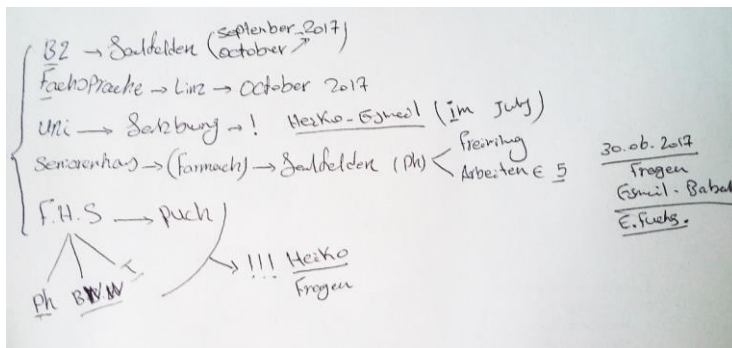 B2 → Saalfelden (september 2017
october ↗)
Fachsprache → Linz → October 2017
Uni → Salzburg → ! Heiko - Esmeil (im July)
Seniorenhaus → (Farmach) → Saalfelden (Ph) < freiwillig
Arbeiten € 5
F.H.S → puch
Ph BWW T
→ !!! Heiko
Fragen
30.06.2017
Fragen
Esmeil - Babak
E. Fuchs.